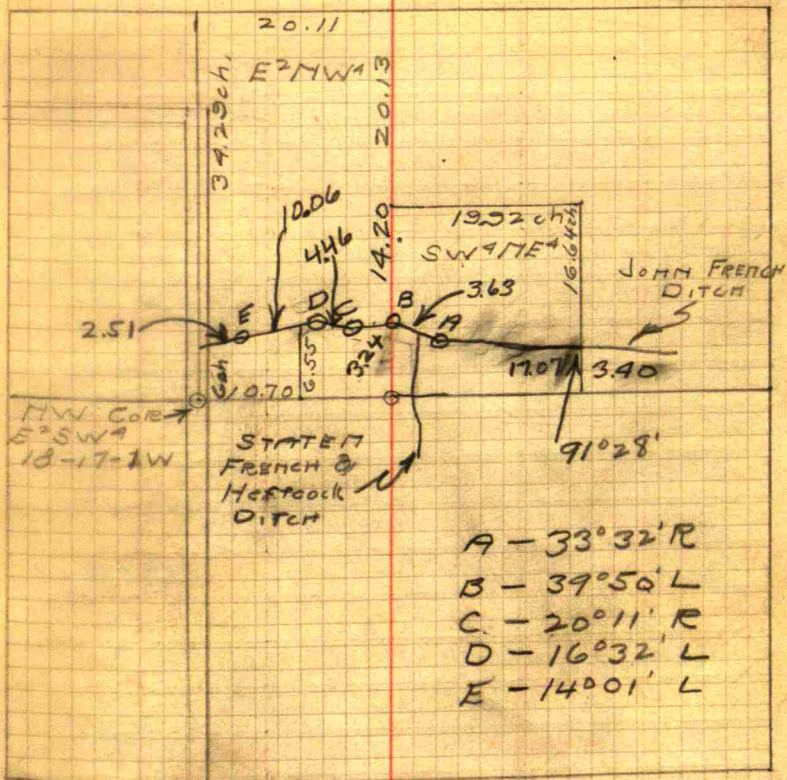 20.11
E²NW⁴
34.29ch.
20.13
10.06
4.46
14.20
19.92 ch
SW⁴NE⁴
16.64ch
JOHN FRENCH
DITCH
2.51
E
D
C
B
3.63
A
6ch
10.70
6.55
3.24
17.07
3.40
NW COR
E²SW⁴
18-17-1W
STATEN
FRENCH &
DITCH
91°28'
A - 33°32' R
B - 39°50' L
C. - 20°11' R
D - 16°32' L
E - 14°01' L